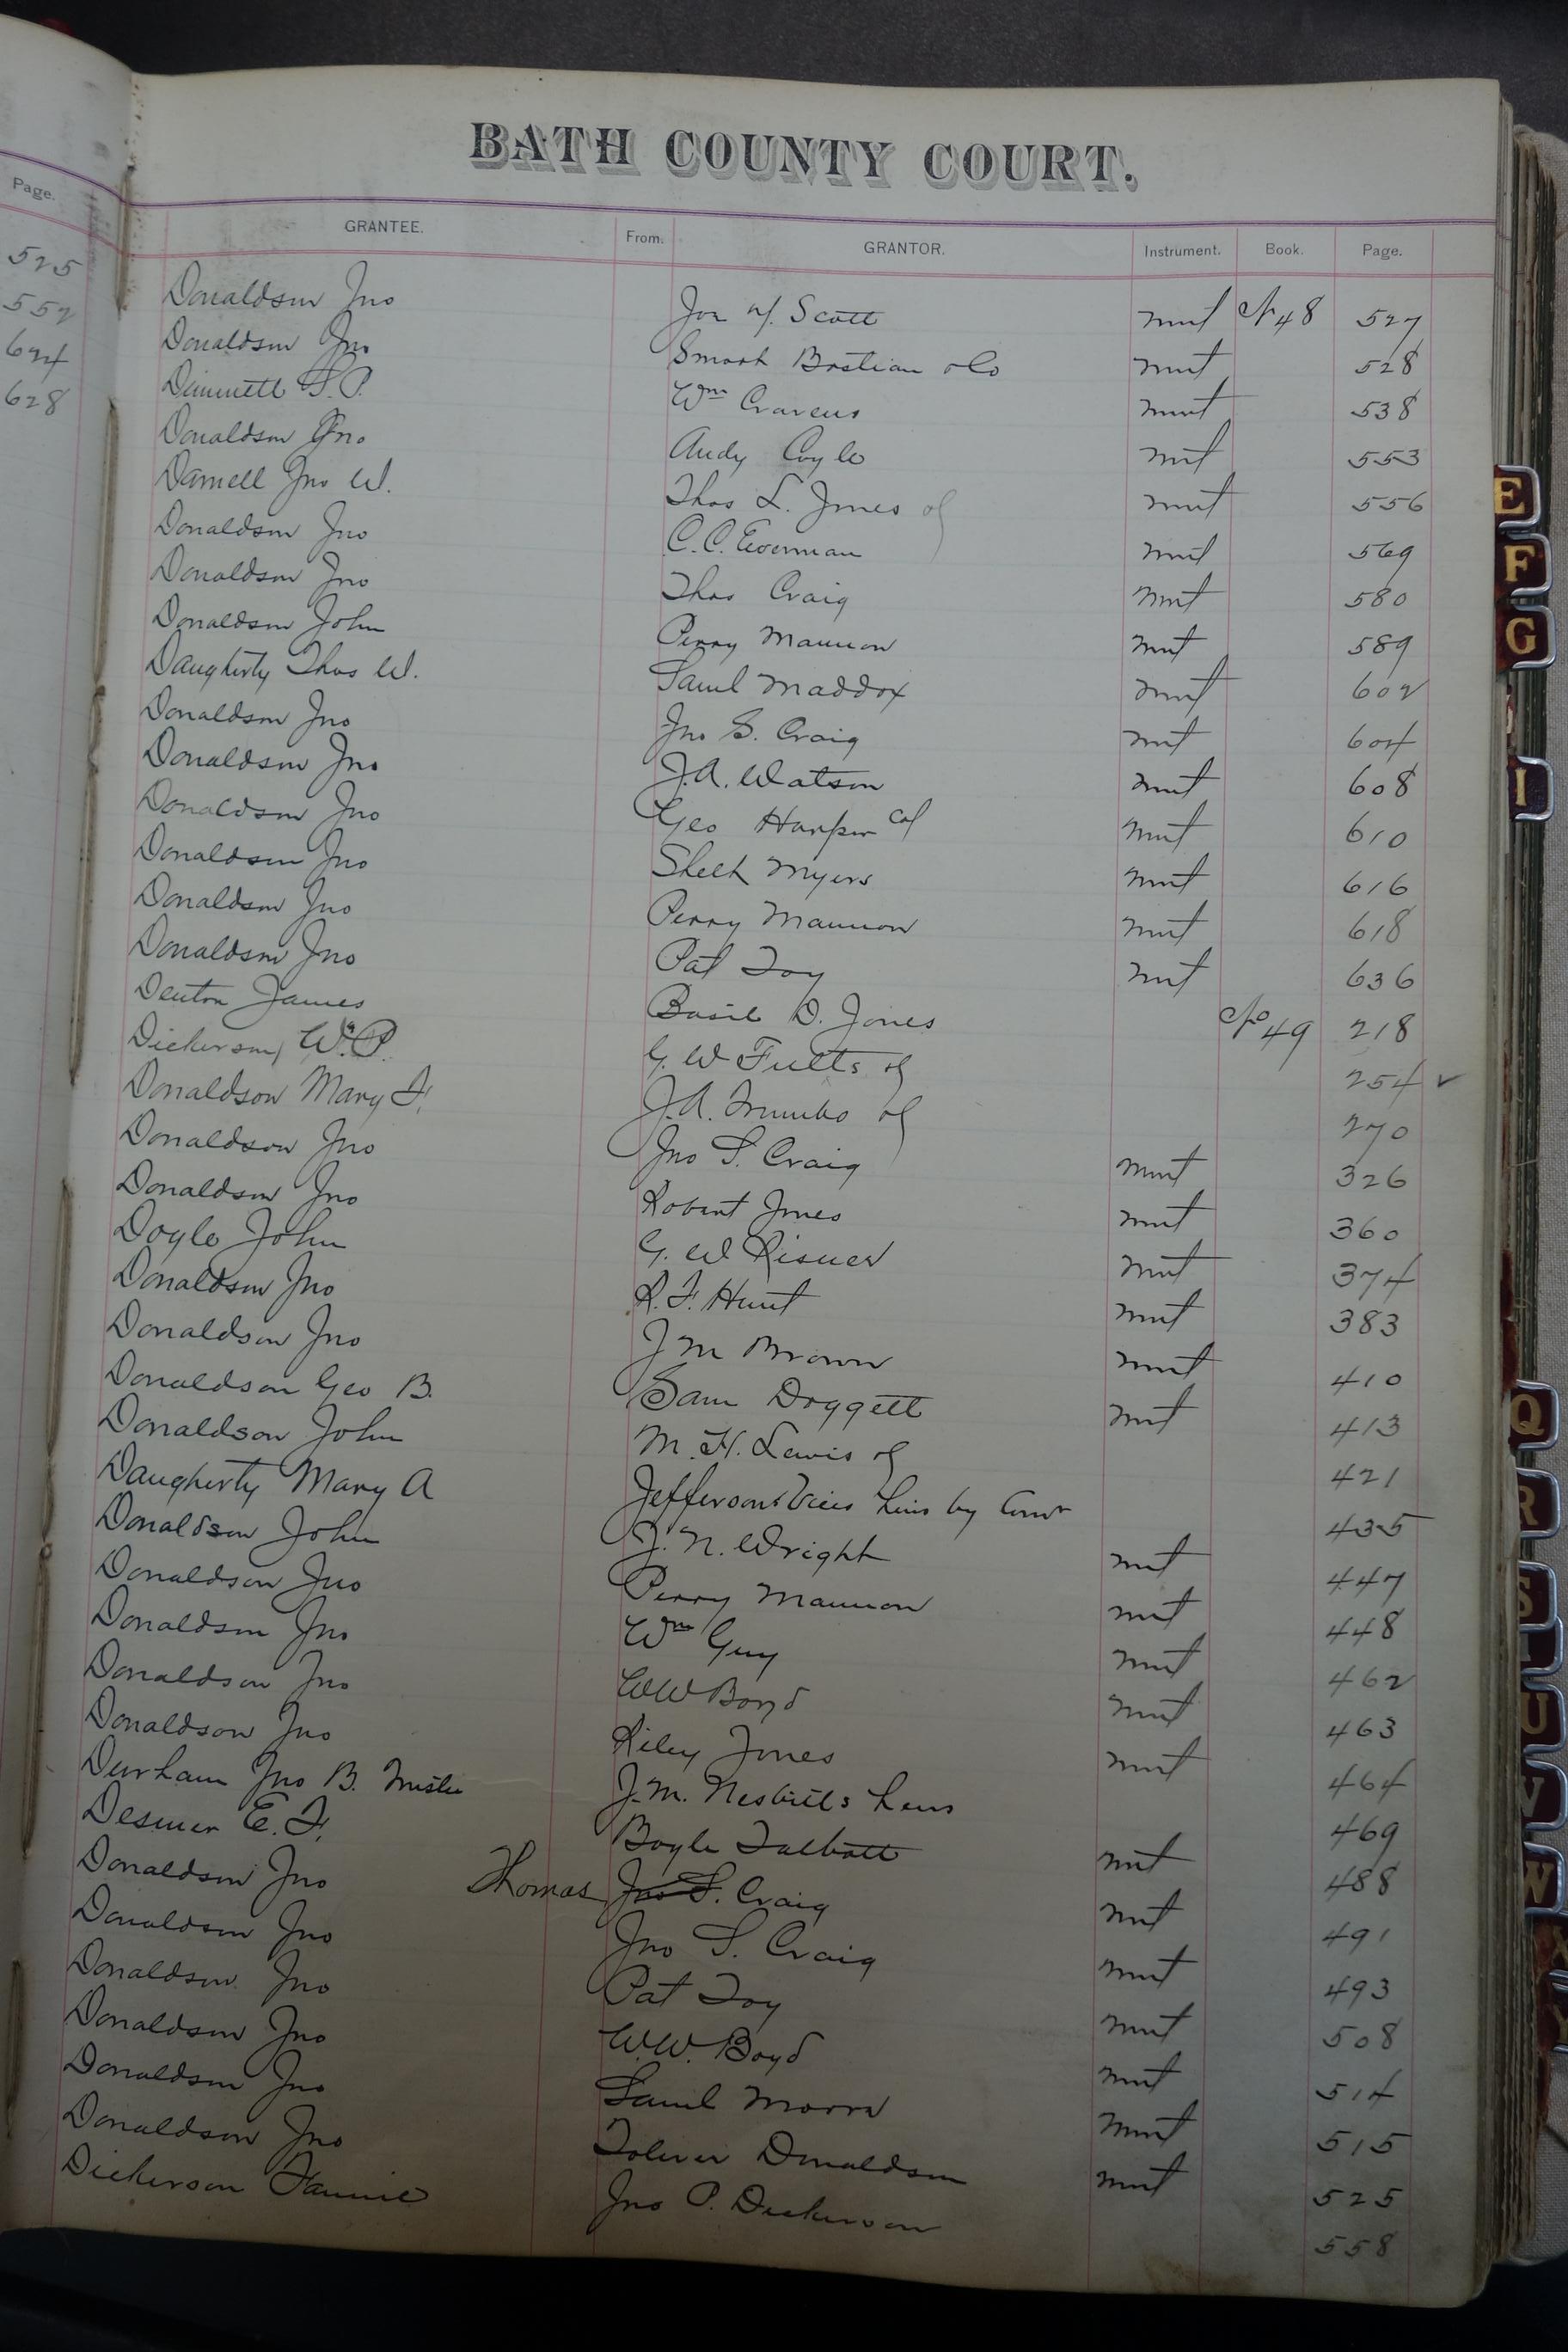 BATH COUNTY COURT.
Page.
GRANTEE. From. GRANTOR. Instrument. Book. Page.
525
552
624
628
Donaldson Jno Scott mut No 48 527
Donaldson Jno Smart Bastian &Co mut 528
S. P. Wm Cravens mut 538
Donaldson Jno Andy Coyle mut 553
Darnell Jno W. Thos L. Jones of mut 556
Donaldson Jno C. C. Everman mut 569
Donaldson Jno Thos Craig mut 580
Donaldson John Perry Mannon mut 589
Daugherty Thos W. Saml Maddox mut 602
Donaldson Jno Jno S. Craig mut 604
Donaldson Jno J. A. Watson mut 608
Donaldson Jno Geo Harper Col mut 610
Donaldson Jno Myers mut 616
Donaldson Jno Perry Mannon mut 618
Donaldson Jno Pat Toy mut 636
Denton James Basil D. Jones No 49 218
Dickerson W. P. G. W Fults of 254 ✓
Donaldson Mary F. J. A. Trumbo of 270
Donaldson Jno Jno S. Craig mut 326
Donaldson Jno Robert Jones mut 360
Doyle John G. W Risner mut 374
Donaldson Jno R. F. Hunt mut 383
Donaldson Jno J M Brown mut 410
Donaldson Geo B. Sam Doggett mut 413
Donaldson John M. H. Lewis of 421
Daugherty Mary A Jefferson heirs by 435
Donaldson John J. N. Wright mut 447
Donaldson Jno Perry Mannon mut 448
Donaldson Jno Wm Guy mut 462
Donaldson Jno W W Boyd mut 463
Donaldson Jno Riley Jones mut 464
Durham Jno B. J. M. Nesbitts heirs 469
E. F. Boyle Talbott mut 488
Donaldson Jno Thomas Jno S. Craig mut 491
Donaldson Jno Jno S. Craig mut 493
Donaldson Jno Pat Toy mut 508
Donaldson Jno W. W. Boyd mut 514
Donaldson Jno Saml mut 515
Donaldson Jno Toliver Donaldson mut 525
Dickerson Fannie Jno P. Dickerson 558
E
F
G
I
Q
R
S
U
V
W
Y